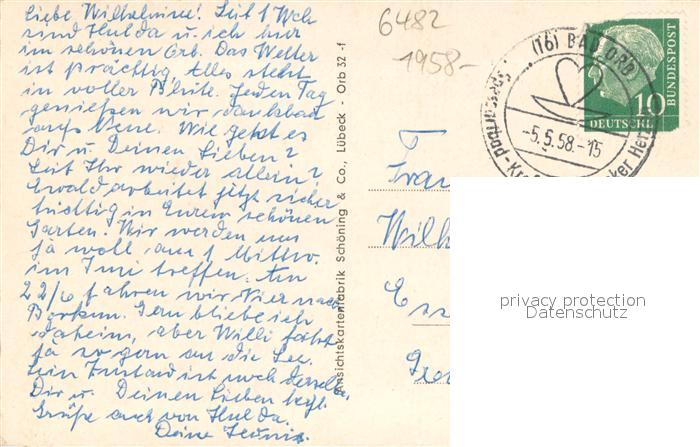 Liebe Wilhelmine! Seit 1 Wch
sind Hulda u. ich hier
im schönen Orb. Das Wetter
ist prächtig, Alles steht
in voller Blüte. Jeden Tag
genießen wir dankbar
aufs Neue. Wie geht es
Dir u. Deinen Lieben?
Seit Ihr wieder allein?
Ewald arbeitet jetzt sicher
tüchtig in Eurem schönen
Garten. Wir werden uns
ja wohl am 1 Mittw.
im Juni treffen. Am
22/6 fahren wir Vier nach
Borkum. Gern bliebe ich
daheim, aber Willi fährt
ja so gern an die See.
Sein Zustand ist noch derselbe.
Dir u. Deinen Lieben herzl.
Grüße auch von Hulda.
Deine
6482
1958-
Ansichtskartenfabrik Schöning & Co., Lübeck - Orb 32 -f
(16) BAD ORB
-5.5.58.-15
10
DEUTSCHE
BUNDESPOST
Frau
Wilh
Ess
privacy protection
Datenschutz